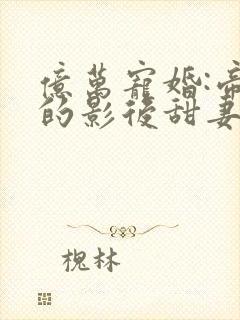 億萬寵婚:帝
的影後甜妻
槐林